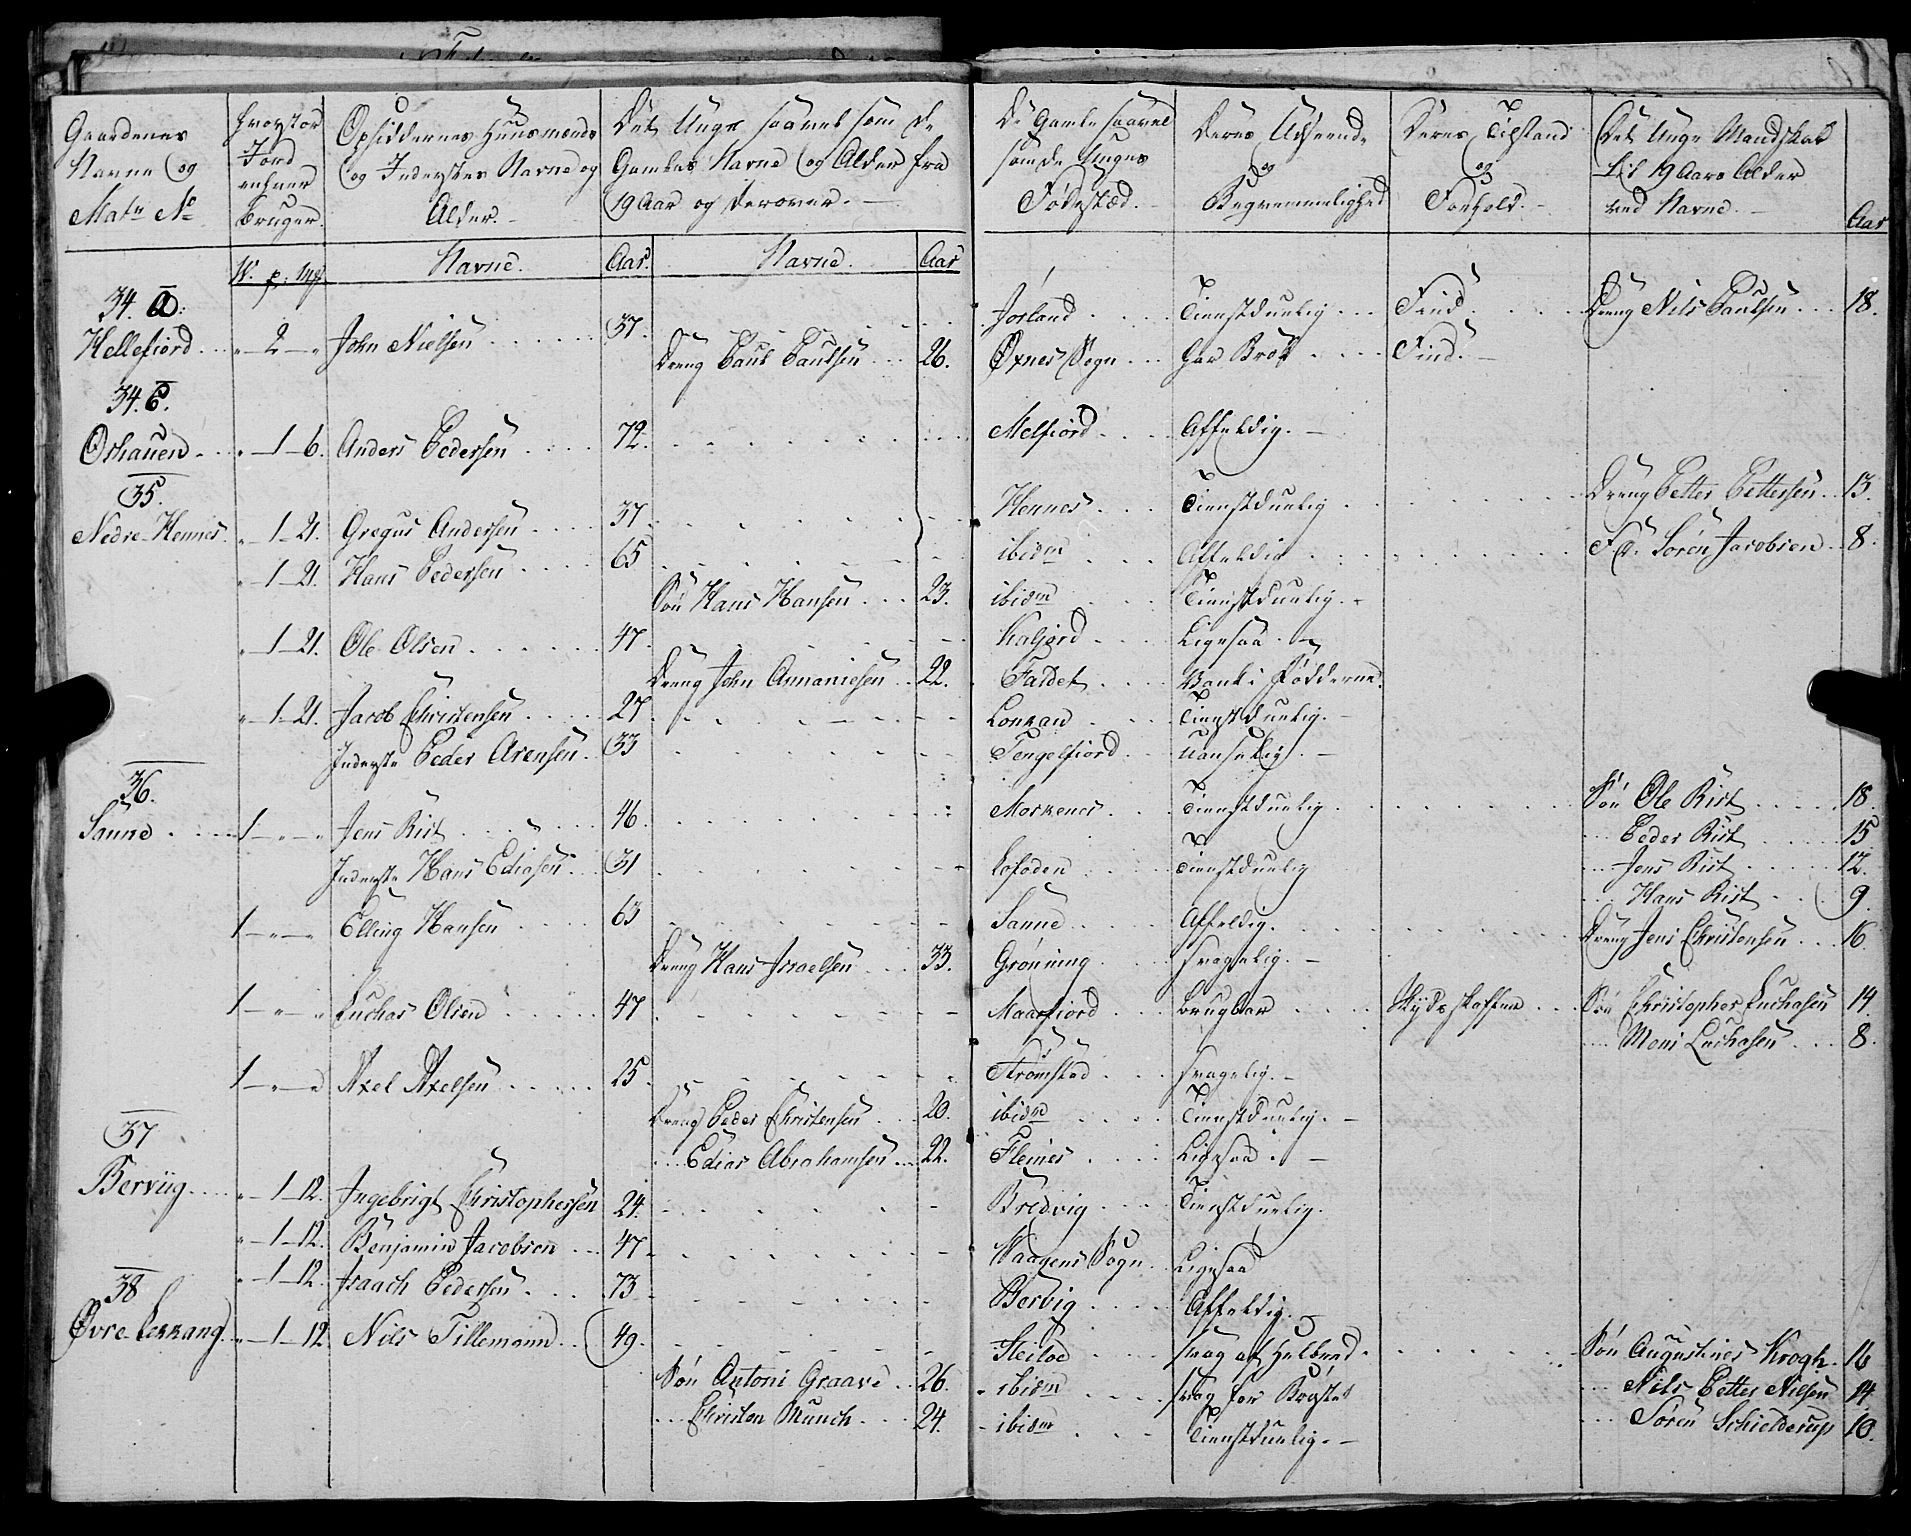 Gaardenes Navne og Matr No
hvor stor Jord enhver bruger
Opsiddernes Huusmænds og Inderstes Navne og Alder.
Det Unge saavel som de Gamles Navne og Alder fra 19 Aar og derover.
De Gamle saavel som de Unges Fødestæd.
Deres Udseende og Beqvemmelighed
Deres Tilstand og Forhold.
Det Unge Mandskab til 19 Aars Alder ved Navne.
Aar
W. p. Mk. Navne. Aar. Navne. Aar
34. A:
Hellefiord 2 John Nielsen 37. Josland Tienstduelig Find. Dreng Nils Paulsen 18.
Dreng Paul Paulsen 26. Øxnes Sogn har Brok Find.
34. B.
Oshauen 1 6. Anders Pedersen 72. Melfiord Affeldig.
35.
Nedre Hennes 1 21. Gregus Andersen 37. Hennes Tienstduelig Dreng Petter Pettersen 13.
1 21. Hans Pedersen 65 ibidm Affeldig F.S. Sørèn Jacobsen 8.
Søn Hans Hansen 23. ibidm Tienstduelig.
1 21. Ole Olsen 47. Kalfjord Ligesaa.
Dreng John Annaniesen 22. Faldet Vank i Fødderne.
1 21. Jacob Christensen 27. Lonkan Tienstduelig.
Inderste Peder Arensen 33 Tengelfiord Uanselig.
36.
Sanne 1 Jens Rist 46. Moskenes Tienstduelig Søn Ole Rist 18.
Peder Rist 15
Inderste Hans Ediasen 31 Lofoden Tienstduelig Jens Rist 12.
Hans Rist 9.
1 Elling Hansen 63 Sanne Affeldig. Dreng Jens Christensen 16.
Dreng Hans Israelsen 33. Grønning svagelig.
1 Luchas Olsen 47 Maarfiord brugbar Skydsskaffer Søn Christopher Luchasen 14.
Mons Luchasen 8.
1 Axel Axelsen 25. Strømstad svagelig.
Dreng Peder Christensen 20. ibidm Tienstduelig.
Edias Abrahamsen 22. Fleines Ligesaa.
37
Berviig 1 12. Ingebrigt Christophersen 24. Bredvig Tienstduelig.
1 12. Benjamin Jacobsen 47 Waagens Sogn Ligesaa
1 12. Isaach Pedersen 73 Bervig Affeldig.
38
Øvre Lekkang 1 12. Nils Tillemann 49. Steiloe svag af Helbred. Søn Augustinus Krogh 16
Søn Antoni Graave 26. ibidm svag for Brystet Nils Petter Nielsen 14.
Christen Munch 24. ibidm Tienstduelig. Søren Schielderup 10.